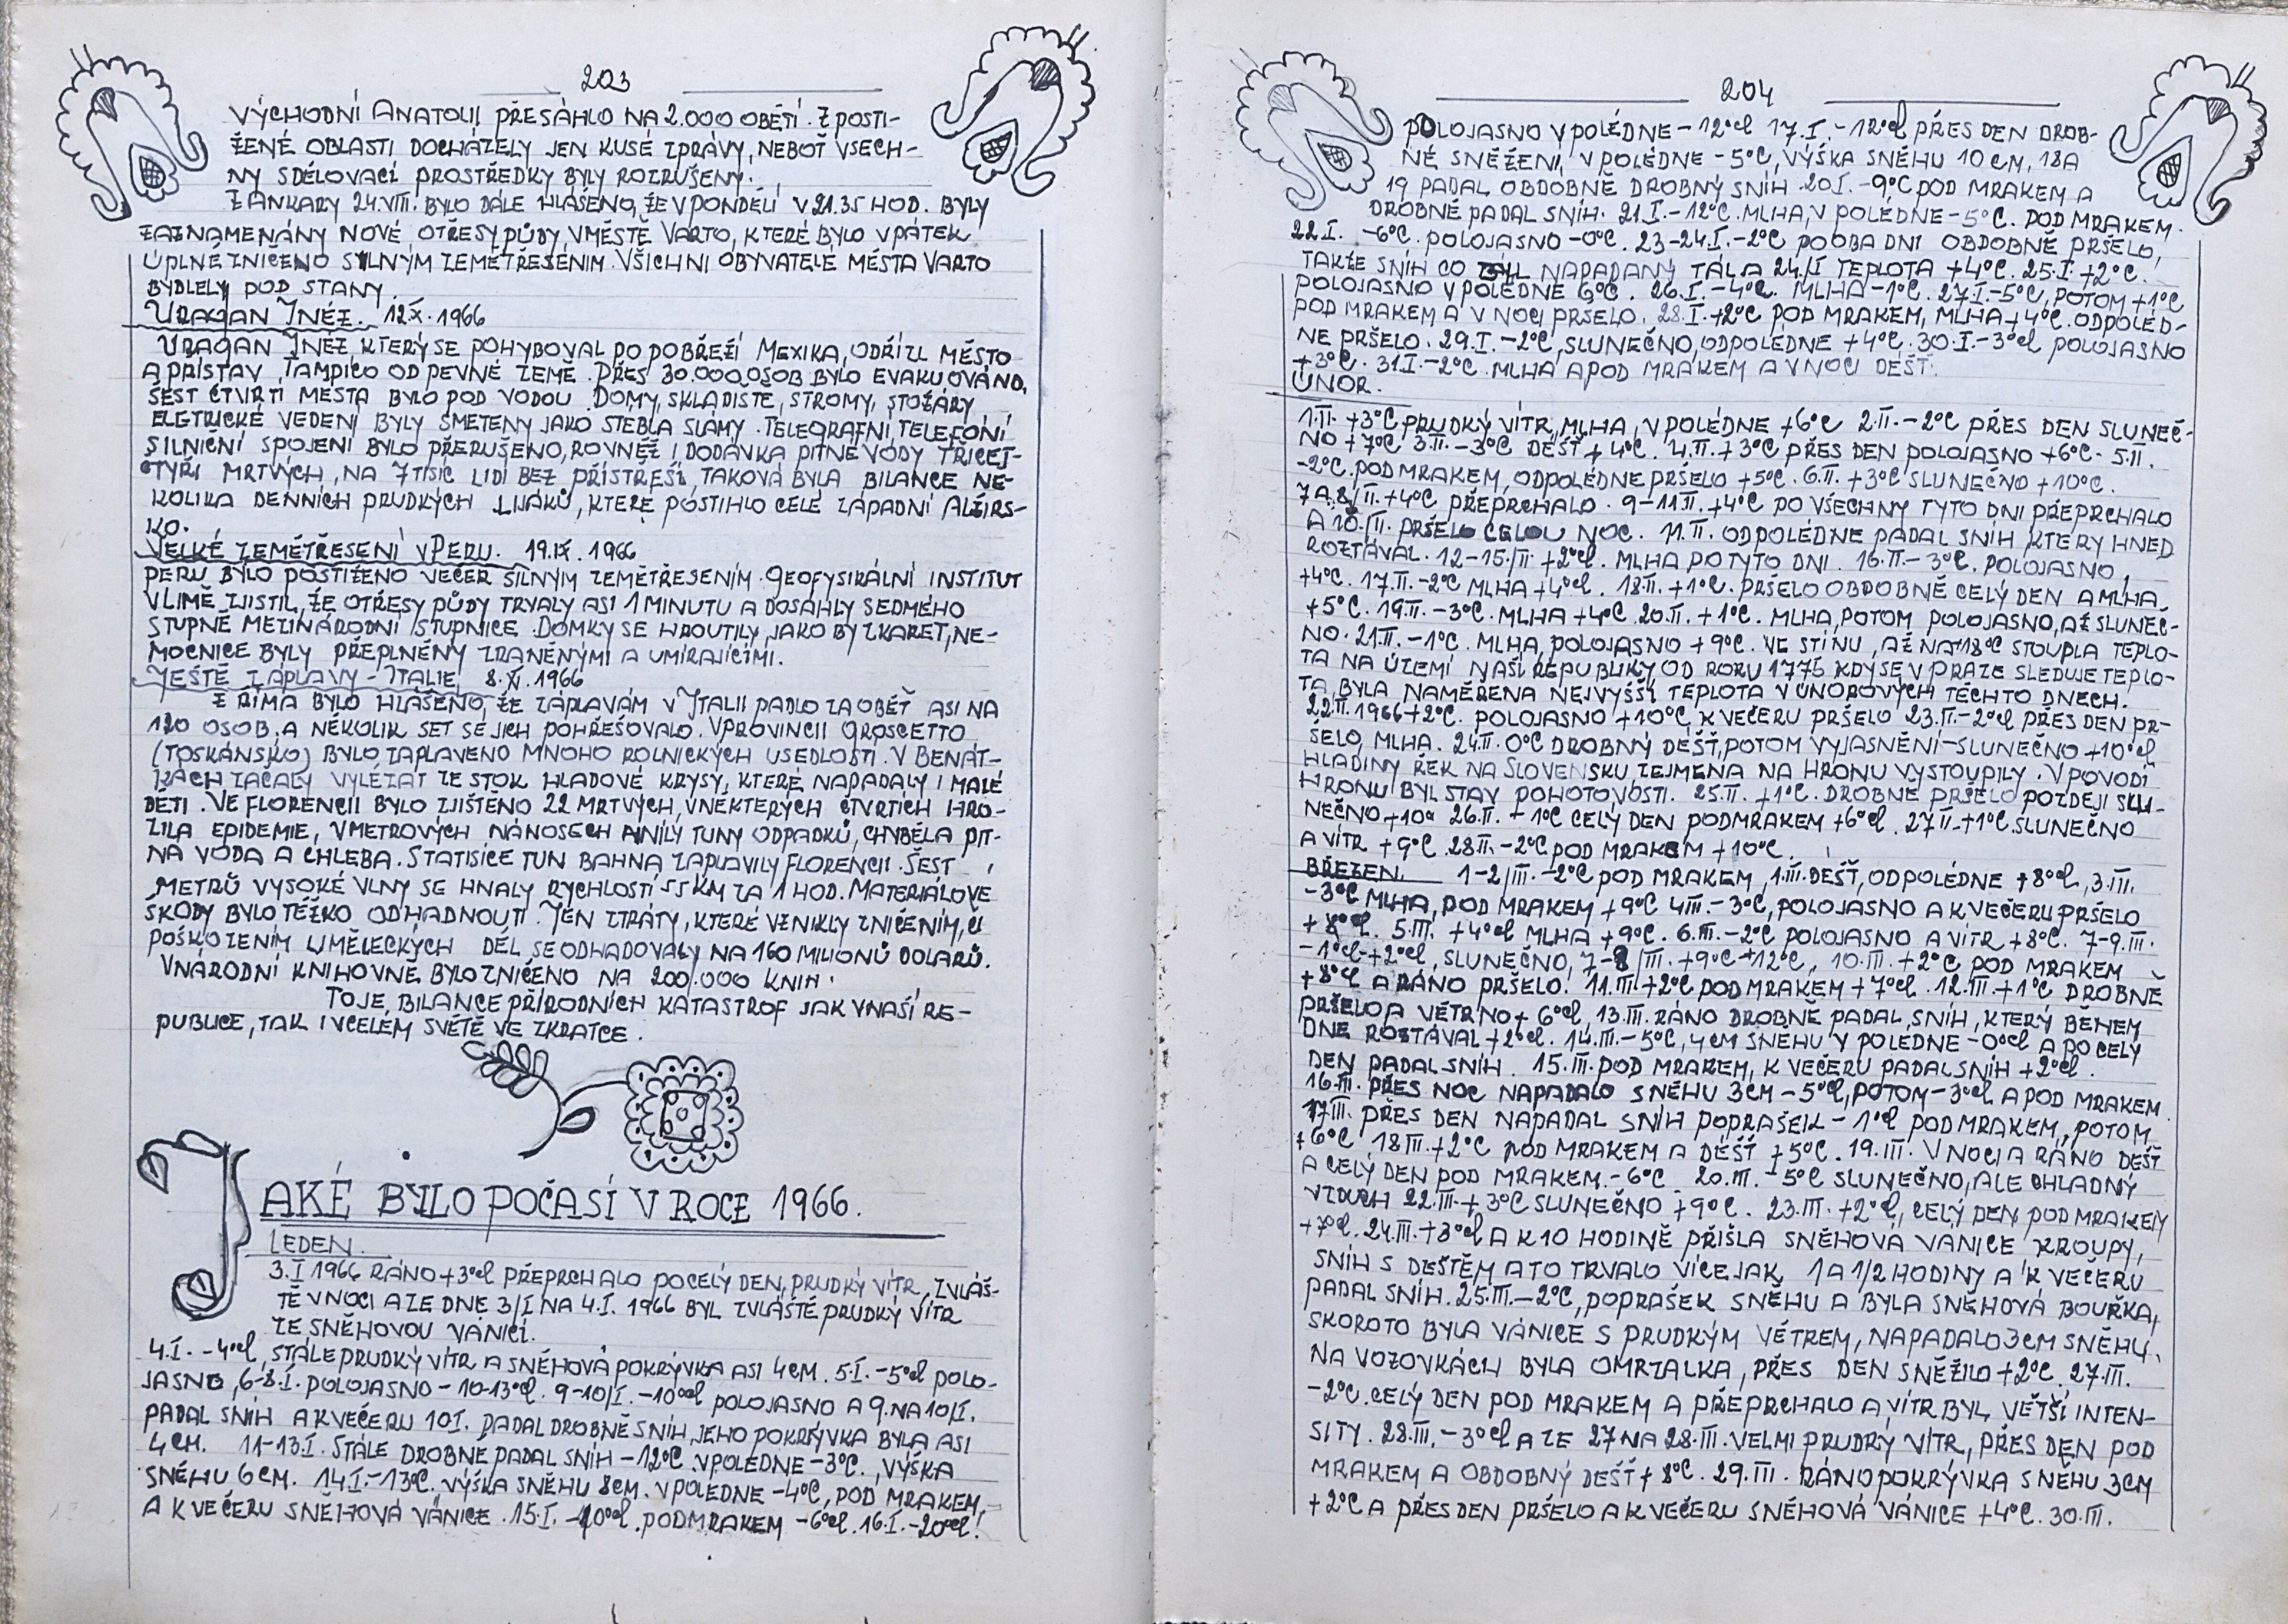 203
VÝCHODNÍ ANATOLII PŘESÁHLO NA 2.000 OBĚTÍ. Z POSTI-
ŽENÉ OBLASTI DOCHÁZELY JEN KUSÉ ZPRÁVY, NEBOŤ VŠECH-
NY SDĚLOVACÍ PROSTŘEDKY BYLY ROZRUŠENY.
Z ANKARY 24.VIII. BYLO DÁLE HLÁŠENO, ŽE V PONDĚLÍ V 21.35 HOD. BYLY
ZAZNAMENÁNY NOVÉ OTŘESY PŮDY, V MĚSTĚ VARTO, KTERÉ BYLO V PÁTEK
ÚPLNĚ ZNIČENO SILNÝM ZEMĚTŘESENÍM. VŠICHNI OBYVATELÉ MĚSTA VARTO
BYDLELY POD STANY.
URAGAN INÉZ. 12.X.1966
URAGAN INEZ, KTERÝ SE POHYBOVAL PO POBŘEŽÍ MEXIKA, ODŘÍZL MĚSTO
A PŘÍSTAV TAMPICO OD PEVNÉ ZEMĚ. PŘES 30.000 OSOB BYLO EVAKUOVÁNO.
ŠEST ČTVRTÍ MĚSTA BYLO POD VODOU. DOMY, SKLADIŠTĚ, STROMY, STOŽÁRY
ELGTRICKÉ VEDENÍ BYLY SMETENY JAKO STÉBLA SLÁMY. TELEGRAFNÍ, TELEFONÍ
SILNIČNÍ SPOJENÍ BYLO PŘERUŠENO, ROVNĚŽ I DODÁVKA PITNÉ VODY TŘICET-
ČTYŘI MRTVÝCH, NA 7 TISÍC LIDÍ BEZ PŘÍSTŘEŠÍ, TAKOVÁ BYLA BILANCE NE-
KOLIKA DENNÍCH PRUDKÝCH LIJÁKŮ, KTERÉ POSTIHLO CELÉ ZÁPADNÍ ALŽÍRS-
KO.
VELKÉ ZEMĚTŘESENÍ V PERU. 19.IX.1966
PERU BYLO POSTIŽENO VEČER SILNÝM ZEMĚTŘESENÍM. GEOFYSIKÁLNÍ INSTITUT
V LIMĚ ZJISTIL, ŽE OTŘESY PŮDY TRVALY ASI 1 MINUTU A DOSÁHLY SEDMÉHO
STUPNĚ MEZINÁRODNÍ STUPNICE. DOMKY SE HROUTILY JAKO BY Z KARET, NE-
MOCNICE BYLY PŘEPLNĚNY ZRANĚNÝMI A UMÍRAJÍCÍMI.
JEŠTĚ ZÁPLAVY - ITALIE. 8.XI.1966
Z ŘÍMA BYLO HLÁŠENO, ŽE ZÁPLAVÁM V ITALII PADLO ZA OBĚŤ ASI NA
120 OSOB, A NĚKOLIK SET SE JICH POHŘEŠOVALO. V PROVINCII GROSCETTO
(TOSKÁNSKO) BYLO ZAPLAVENO MNOHO ROLNICKÝCH USEDLOSTÍ. V BENÁT-
KÁCH ZAČALY VYLÉZAT ZE STOK HLADOVÉ KRYSY, KTERÉ NAPADALY I MALÉ
DĚTI. VE FLORENCII BYLO ZJIŠTĚNO 22 MRTVÝCH, V NĚKTERÝCH ČTVRTÍCH HRO-
ZILA EPIDEMIE, V METROVÝCH NÁNOSECH HNILY TUNY ODPADKŮ, CHYBĚLA PIT-
NÁ VODA A CHLEBA. STATISÍCE TUN BAHNA ZAPLAVILY FLORENCII. ŠEST
METRŮ VYSOKÉ VLNY SE HNALY RYCHLOSTÍ 55 KM ZA 1 HOD. MATERIÁLOVÉ
ŠKODY BYLO TĚŽKO ODHADNOUTI. JEN ZTRÁTY, KTERÉ VZNIKLY ZNIČENÍM, ČI
POŠKOZENÍM UMĚLECKÝCH DĚL, SE ODHADOVALY NA 160 MILIONŮ DOLARŮ.
V NÁRODNÍ KNIHOVNĚ BYLO ZNIČENO NA 200.000 KNIH.
TO JE BILANCE PŘÍRODNÍCH KATASTROF JAK V NAŠÍ RE-
PUBLICE, TAK I V CELÉM SVĚTĚ VE ZKRATCE.
JAKÉ BYLO POČASÍ V ROCE 1966.
LEDEN.
3.I 1966 RÁNO +3°cl PŘEPRCHALO PO CELÝ DEN, PRUDKÝ VÍTR, ZVLÁŠ-
TĚ V NOCI A ZE DNE 3/I NA 4.I. 1966 BYL ZVLÁŠTĚ PRUDKÝ VÍTR
ZE SNĚHOVOU VÁNICÍ.
4.I. -4°cl, STÁLE PRUDKÝ VÍTR A SNĚHOVÁ POKRÝVKA ASI 4 CM. 5.I. -5°cl POLO-
JASNO, 6-8.I. POLOJASNO -10-13°cl. 9-10/I. -10°cl POLOJASNO A 9. NA 10/I.
PADAL SNÍH A K VEČERU 10.I. PADAL DROBNĚ SNÍH, JEHO POKRÝVKA BYLA ASI
4 CM. 11-13.I. STÁLE DROBNĚ PADAL SNÍH -12°C. V POLEDNE -3°C., VÝŠKA
SNĚHU 6 CM. 14.I. -13°C. VÝŠKA SNĚHU 8 CM. V POLEDNE -4°C, POD MRAKEM,
A K VEČERU SNĚHOVÁ VÁNICE. 15.I. -10°cl. POD MRAKEM -6°cl. 16.I. -20°cl!
204
POLOJASNO V POLEDNE -12°cl 17.I. -12°cl PŘES DEN DROB-
NÉ SNĚŽENÍ, V POLEDNE -5°C, VÝŠKA SNĚHU 10 CM, 18 A
19 PADAL OBDOBNĚ DROBNÝ SNÍH. 20.I. -9°C POD MRAKEM A
DROBNĚ PADAL SNÍH. 21.I. -12°C. MLHA, V POLEDNE -5°C. POD MRAKEM.
22.I. -6°C. POLOJASNO -0°C. 23-24.I. -2°C PO OBA DNI OBDOBNĚ PRŠELO,
TAKŽE SNÍH CO NAPADANÝ TÁL A 24/I TEPLOTA +4°C. 25.I. +2°C.
POLOJASNO V POLEDNE 6°C. 26.I. -4°C. MLHA -1°C. 27.I. -5°C, POTOM +1°C
POD MRAKEM A V NOCI PRŠELO. 28.I. +2°C POD MRAKEM, MLHA +4°C. ODPOLED-
NE PRŠELO. 29.I. -2°C, SLUNEČNO, ODPOLEDNE +4°C. 30.I. -3°cl POLOJASNO
+3°C. 31.I. -2°C. MLHA A POD MRAKEM A V NOCI DÉŠŤ.
ÚNOR.
1.II. +3°C PRUDKÝ VÍTR, MLHA, V POLEDNE +6°C 2.II. -2°C PŘES DEN SLUNEČ-
NO +7°C 3.II. -3°C DÉŠŤ +4°C. 4.II. +3°C PŘES DEN POLOJASNO +6°C. 5.II.
-2°C. POD MRAKEM, ODPOLEDNE PRŠELO +5°C. 6.II. +3°C SLUNEČNO +10°C.
7 A 8/II. +4°C PŘEPRCHALO. 9-11.II. +4°C PO VŠECHNY TYTO DNI PŘEPRCHALO
A 10./II. PRŠELO CELOU NOC. 11.II. ODPOLEDNE PADAL SNÍH, KTERÝ HNED
ROZTÁVAL. 12-15./II +2°cl. MLHA PO TYTO DNI. 16.II. -3°C. POLOJASNO,
+4°C. 17.II. -2°C MLHA +4°cl. 18.II. +1°C. PRŠELO OBDOBNĚ CELÝ DEN A MLHA
+5°C. 19.II. -3°C. MLHA +4°C 20.II. +1°C. MLHA, POTOM POLOJASNO, AŽ SLUNEČ-
NO. 21.II. -1°C. MLHA, POLOJASNO +9°C. VE STÍNU, AŽ NA +18°C STOUPLA TEPLO-
TA NA ÚZEMÍ NAŠÍ REPUBLIKY, OD ROKU 1775 KDY SE V PRAZE SLEDUJE TEPLO-
TA, BYLA NAMĚŘENA NEJVYŠŠÍ TEPLOTA V ÚNOROVÝCH TĚCHTO DNECH.
22.II. 1966 +2°C. POLOJASNO +10°C, K VEČERU PRŠELO 23.II. -2°cl PŘES DEN PR-
ŠELO, MLHA. 24.II. 0°C DROBNÝ DÉŠŤ, POTOM VYJASNĚNÍ-SLUNEČNO +10°cl.
HLADINY ŘEK NA SLOVENSKU, ZEJMÉNA NA HRONU VYSTOUPILY. V POVODÍ
HRONU BYL STAV POHOTOVOSTI. 25.II. +1°C. DROBNĚ PRŠELO POZDĚJI SLU-
NEČNO +10° 26.II. +1°C CELÝ DEN POD MRAKEM +6°cl. 27.II. +1°C. SLUNEČNO
A VÍTR +9°C. 28.II. -2°C POD MRAKEM +10°C.
BŘEZEN. 1-2/III. -2°C POD MRAKEM, 1.III. DÉŠŤ, ODPOLEDNE +8°cl, 3.III.
-3°C MLHA, POD MRAKEM +9°C 4.III. -3°C, POLOJASNO A K VEČERU PRŠELO
+8°cl. 5.III. +4°cl MLHA +9°C. 6.III. -2°C POLOJASNO A VÍTR +8°C. 7-9.III.
-1°cl-+2°cl, SLUNEČNO, 7-8/III. +9°C-+12°C, 10.III. +2°C POD MRAKEM
+8°cl A RÁNO PRŠELO. 11.III. +2°C POD MRAKEM +7°cl. 12.III. +1°C DROBNĚ
PRŠELO A VĚTRNO + 6°cl, 13.III. RÁNO DROBNĚ PADAL SNÍH, KTERÝ BĚHEM
DNE ROZTÁVAL +2°cl. 14.III. -5°C, 4 CM SNĚHU V POLEDNE -0°cl A PO CELÝ
DEN PADAL SNÍH. 15.III. POD MRAKEM, K VEČERU PADAL SNÍH +2°cl.
16.III. PŘES NOC NAPADALO SNĚHU 3 CM -5°cl, POTOM -3°cl A POD MRAKEM.
17.III. PŘES DEN NAPADAL SNÍH POPRAŠEK -1°cl POD MRAKEM, POTOM
+6°C 18.III. +2°C POD MRAKEM A DÉŠŤ +5°C. 19.III. V NOCI A RÁNO DÉŠŤ
A CELÝ DEN POD MRAKEM -6°C. 20.III. -5°C SLUNEČNO, ALE CHLADNÝ
VZDUCH 22.III. +3°C SLUNEČNO +9°C. 23.III. +2°cl, CELÝ DEN POD MRAKEM
+7°cl. 24.III. +3°cl A K 10 HODINĚ PŘIŠLA SNĚHOVÁ VÁNICE KROUPY,
SNÍH S DEŠTĚM A TO TRVALO VÍCE JAK 1 A 1/2 HODINY A K VEČERU
PADAL SNÍH. 25.III. -2°C, POPRAŠEK SNĚHU A BYLA SNĚHOVÁ BOUŘKA,
SKORO TO BYLA VÁNICE S PRUDKÝM VĚTREM, NAPADALO 3 CM SNĚHU.
NA VOZOVKÁCH BYLA OMRZALKA, PŘES DEN SNĚŽILO +2°C. 27.III.
-2°C. CELÝ DEN POD MRAKEM A PŘEPRCHALO A VÍTR BYL VĚTŠÍ INTEN-
SITY. 28.III. -3°cl A ZE 27 NA 28.III. VELMI PRUDKÝ VÍTR, PŘES DEN POD
MRAKEM A OBDOBNÝ DÉŠŤ +8°C. 29.III. RÁNO POKRÝVKA SNĚHU 3 CM
+2°C A PŘES DEN PRŠELO A K VEČERU SNĚHOVÁ VÁNICE +4°C. 30.III.